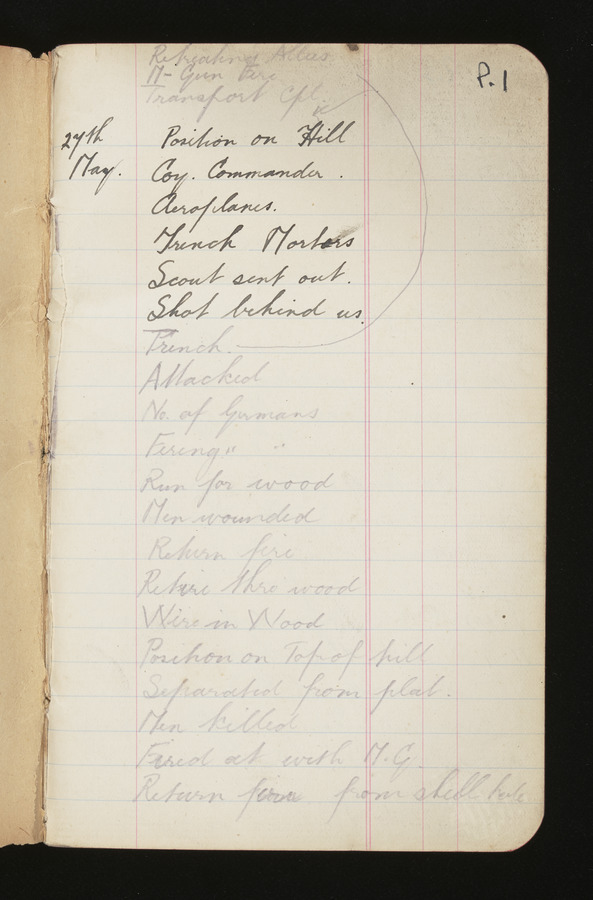 Retreating Allies
M-Gun Fire
Transport Cpl.
P. 1
27th
May.
Position on Hill
Coy. Commander.
Aeroplanes.
Trench Mortars
Scout sent out.
Shot behind us.
Trench.
Attacked
No. of Germans
Fireing " "
Run for wood
Men wounded
Return fire
Retire thro wood
Wire in Wood
Position on Top of hill
Separated from plat.
Men killed
Fired at with M.G.
Return fire from shell hole